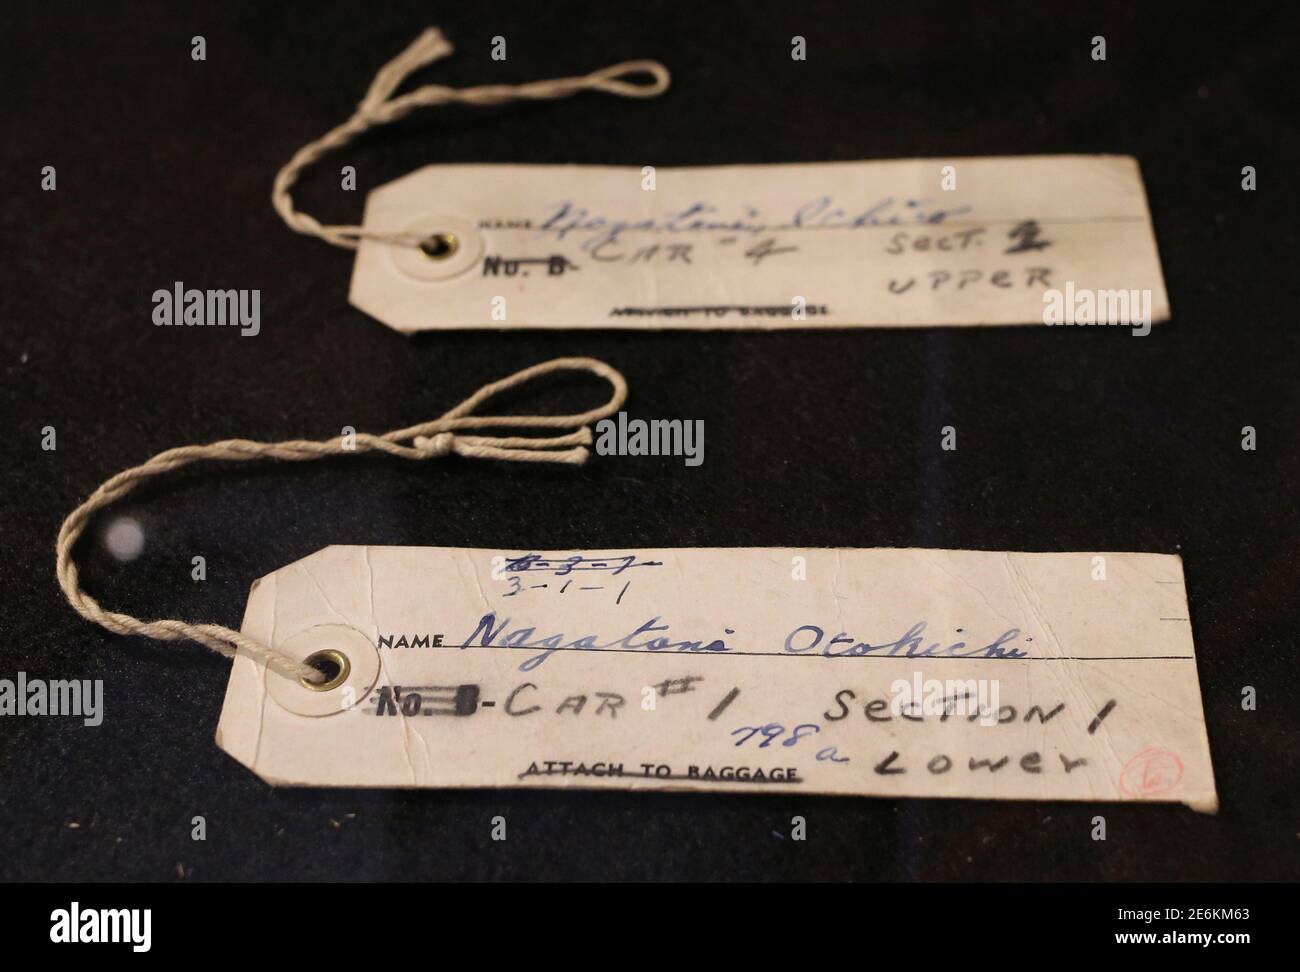 NAME Nagatani, Ichiro
No. B- CAR #4 SECT. 2
UPPER
ATTACH TO BAGGAGE
3-1-1
NAME Nagatani Otokichi
No. B- CAR #1 SECTION 1
798 a LOWER
ATTACH TO BAGGAGE
a alamy
alamy
Image ID: 2E6KM63
www.alamy.com